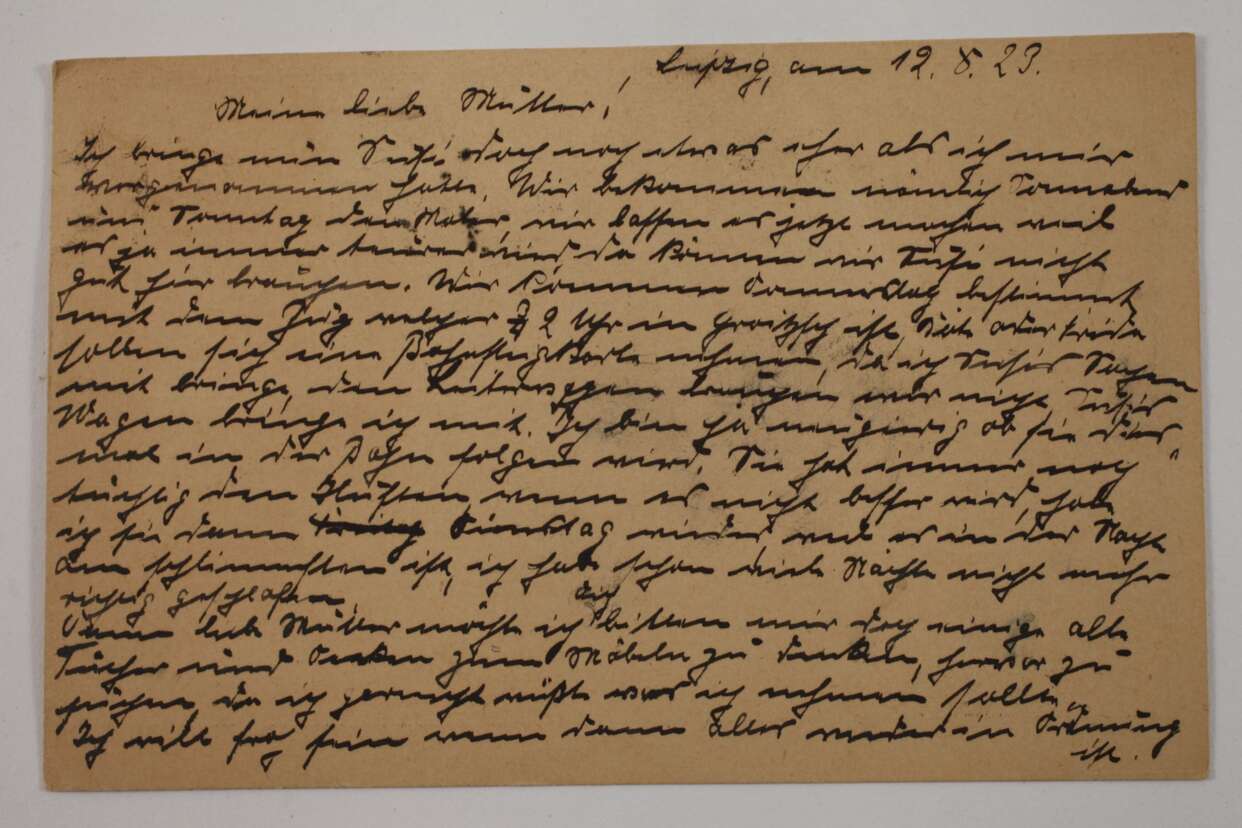 Leipzig, am 12. 8. 23.
Meine liebe Mutter!
Ich bringe nun Susi doch noch etwas eher als ich mir
vorgenommen hatte. Wir bekommen nämlich Sonnabend
und Sonntag den Maler, wir lassen es jetzt machen weil
es ja immer teurer wird da können wir Susi nicht
gut hier brauchen. Wir kommen Donnerstag bestimmt
mit dem Zug welcher 2 Uhr in Groitzsch ist, oder
sollen sich eine Bahnsteigkarte nehmen, da ich Susis Sachen
mit bringe, den Leiterwagen brauchen wir nicht, Susis
Wagen bringe ich mit. Ich bin ja neugierig ob sie dies-
mal in der Bahn folgen wird. Sie hat immer noch
tüchtig den Husten wenn es nicht besser wird, hole
ich sie dann Dienstag wieder weil es in der Nacht
am schlimmsten ist, ich habe schon viele Nächte nicht mehr
richtig geschlafen.
Dann liebe Mutter möchte ich dich bitten mir doch einige alte
Tücher und Decken zum Möbeln zu decken, hervor zu
suchen da ich gar nicht wüßte was ich nehmen sollte.
Ich will froh sein wenn dann alles wieder in Ordnung
ist.